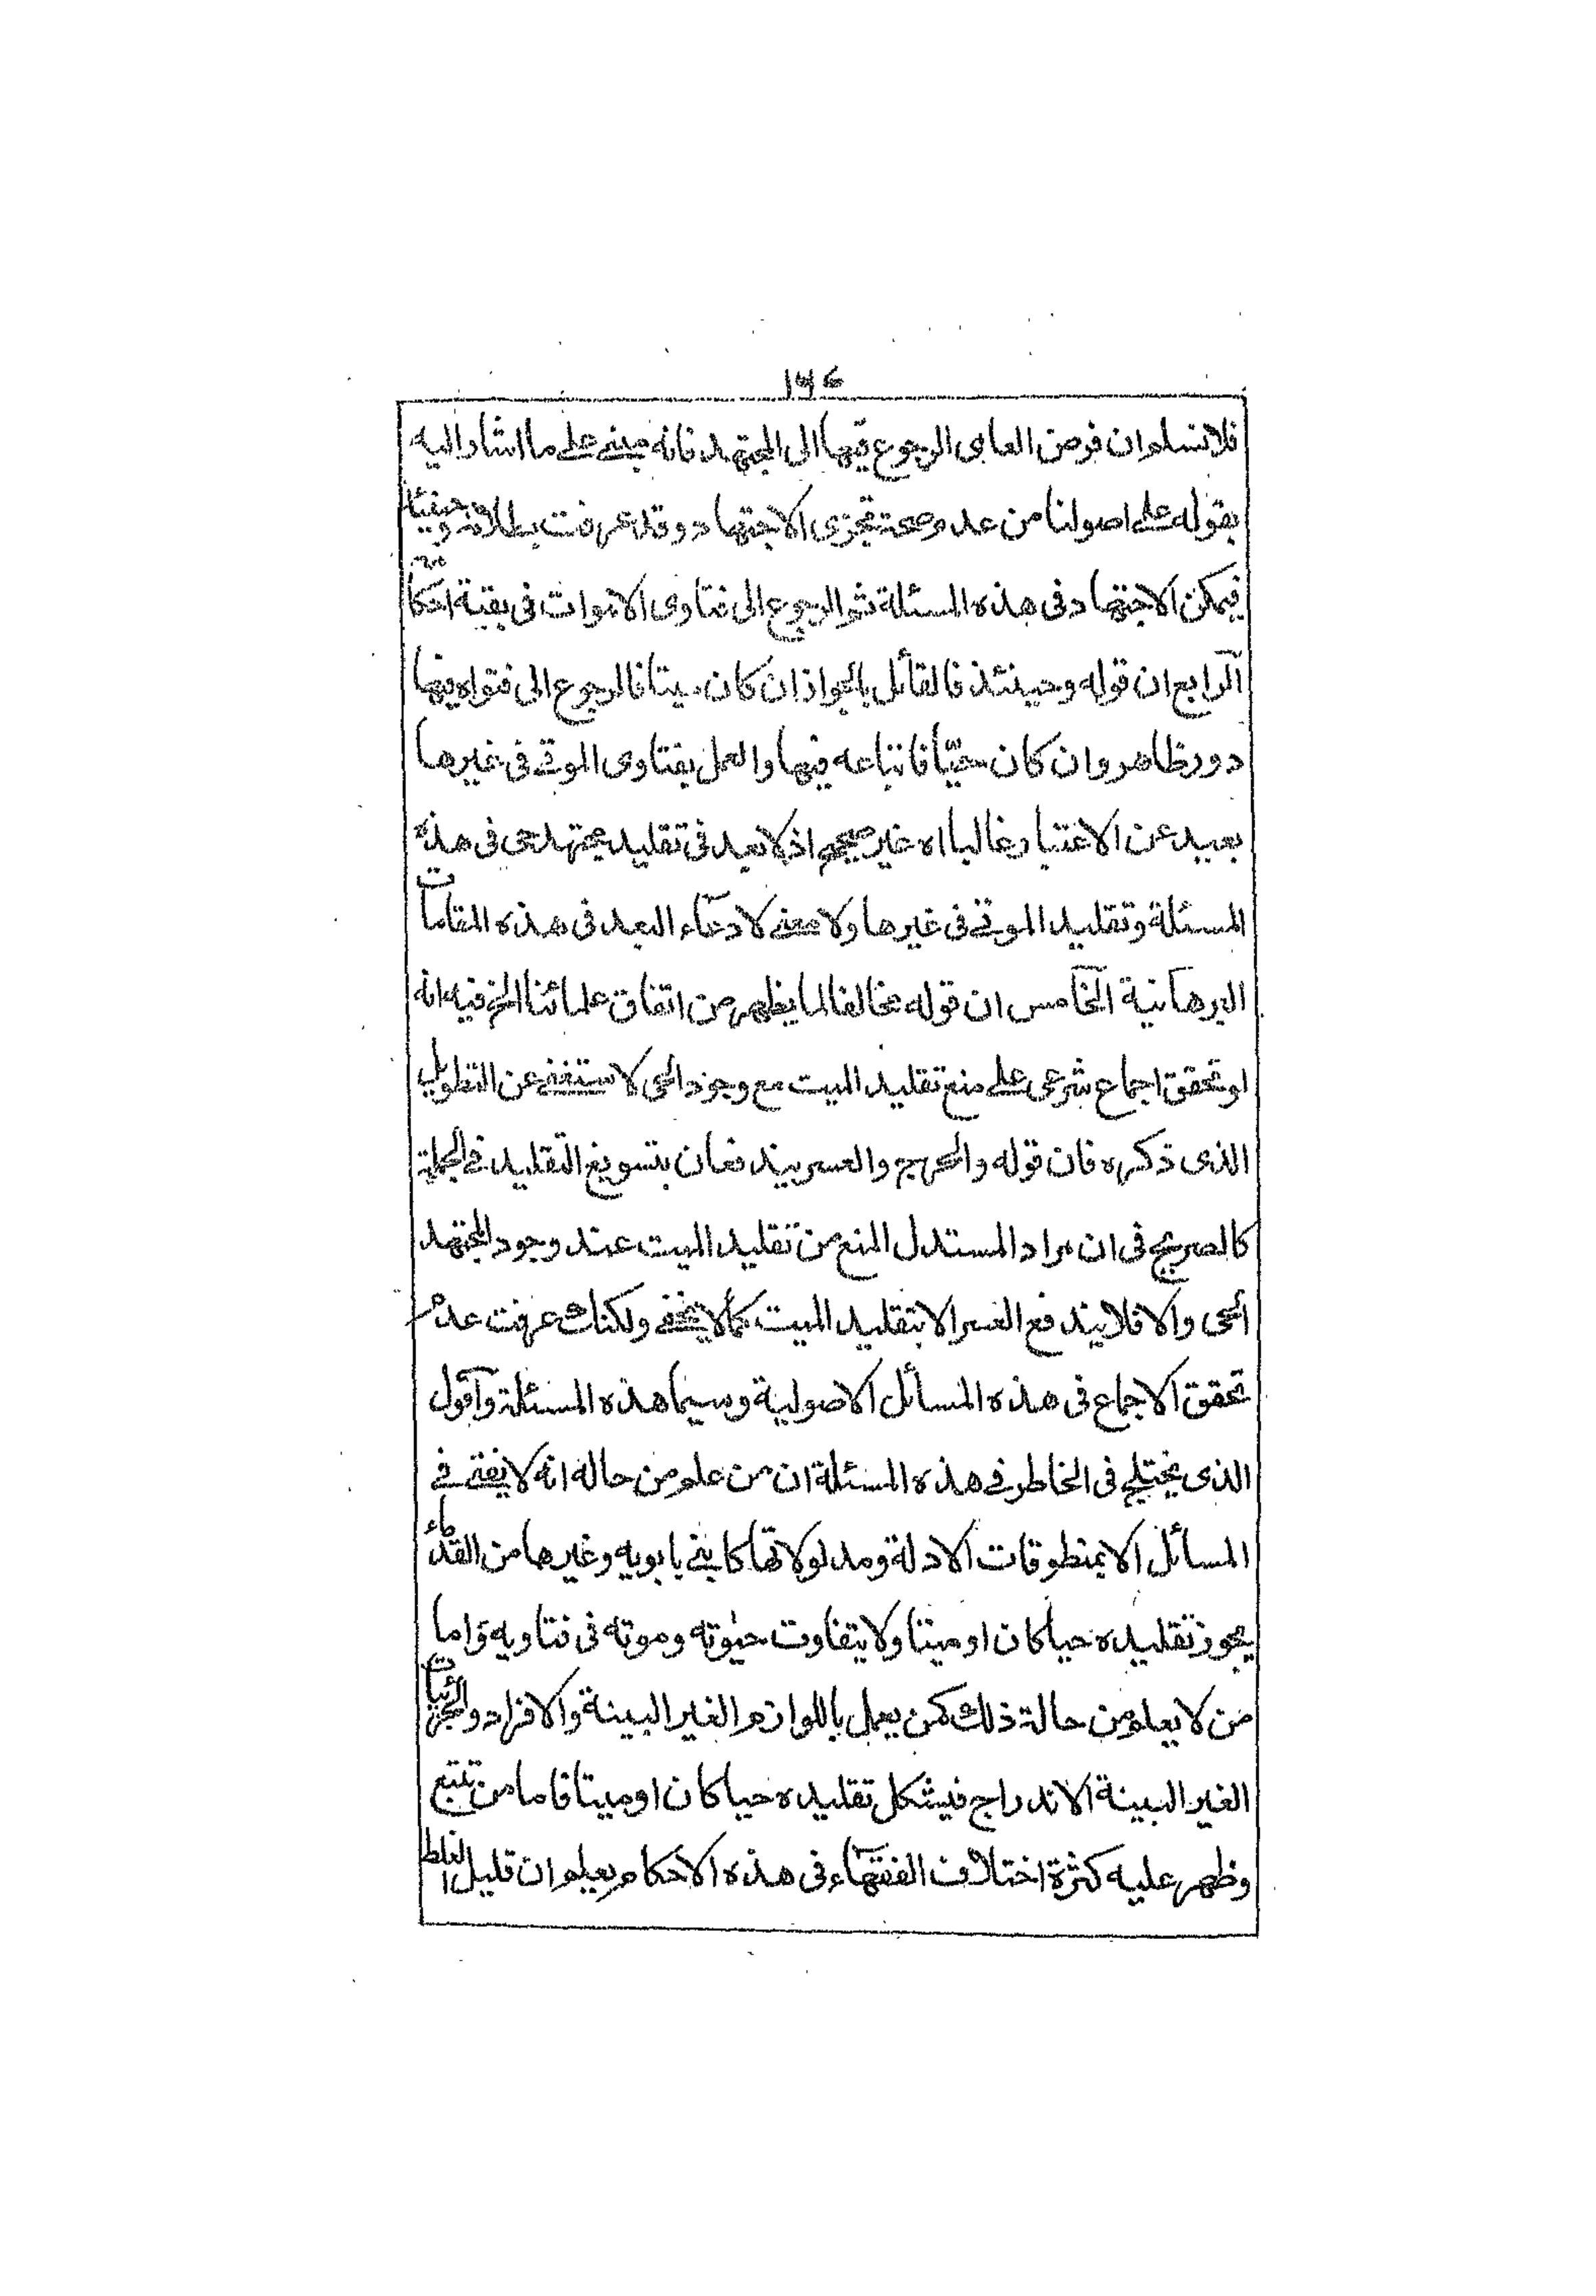 ١٦٤
فلا نسلم ان فرض العامى الرجوع فيها الى المجتهد فانه مبنے علے ما اشار اليه
بقوله علے اصولنا من عدم صحة تجزى الاجتهاد وقد عرفت بطلانه وحينئذ
فيمكن الاجتهاد فى هذه المسئلة ثم الرجوع الى فتاوى الاموات فى بقية احكام
الرابع ان قوله وحينئذ فالقائل بالجواز ان كان ميتا فالرجوع الى فتواه فيها
دور ظاهر وان كان حيّا فاتباعه فيها والعمل بفتاوى الموتے فى غيرها
بعيد عن الاعتبار غالبا اه غير صحيح اذ لا بعد فى تقليد مجتهد حى فى هذه
المسئلة وتقليد الموتے فى غيرها ولا معنے لادعآء البعد فى هذه المقامات
البرهانية الخآمس ان قوله مخالفا لما يظهر من اتفاق علمائنا الخ فيه انه
لو تحقق اجماع شرعى علے منع تقليد الميت مع وجود الحى لاستغنے عن التطويل
الذى ذكره فان قوله والحرج والعسر يندفعان بتسويغ التقليد فے الجملة
كالصريح فى ان مراد المستدل المنع من تقليد الميت عند وجود المجتهد
الحى والا فلا يندفع العسر الا بتقليد الميت كما لا يخفے ولكنك عرفت عدم
تحقق الاجماع فى هذه المسائل الاصولية وسيما هذه المسئلة وآقول
الذى يختلج فى الخاطر فے هذه المسئلة ان من علم من حاله انه لا يفتے فے
المسائل الا بمنطوقات الادلة ومدلولاتها كابنے بابويه وغيرهما من القدماء
يجوز تقليده حيا كان او ميتا ولا يتفاوت حيوته وموته فى فتاويه واما
من لا يعلم من حالة ذلك كمن يعمل باللوازم الغير البينة والافراد والجزئيات
الغير البينة الاندراج فيشكل تقليده حيا كان او ميتا فاما من تتبع
وظهر عليه كثرة اختلاف الفقهآء فى هذه الاحكام يعلم ان قليل الغلط